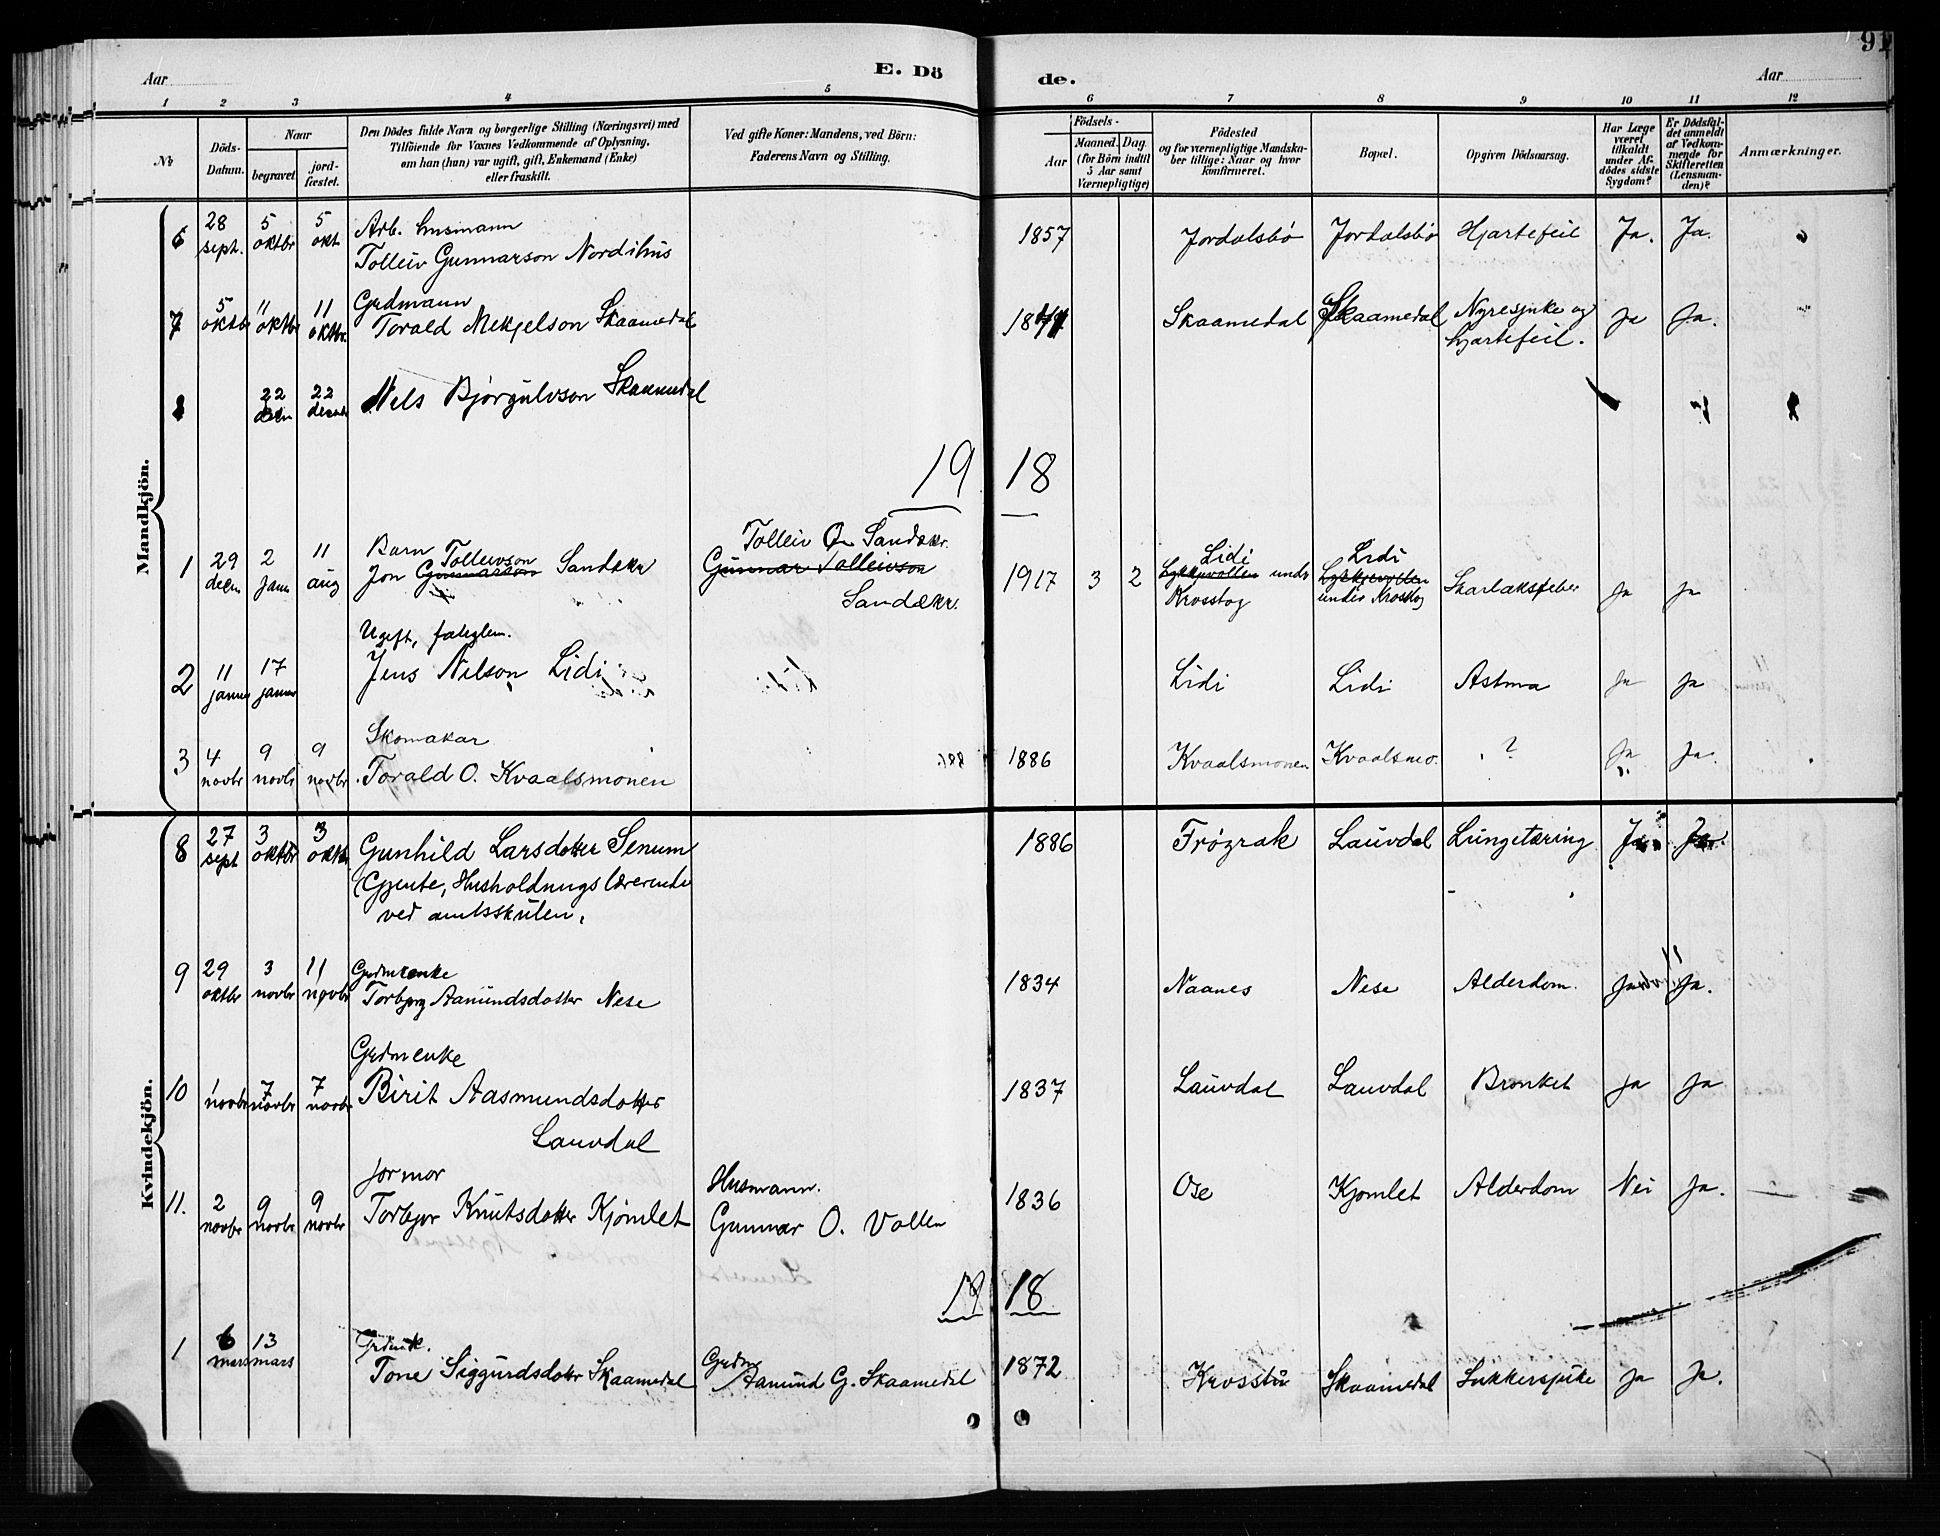 91
Aar
E. Dö
de.
Aar
1 2 3 4 5 6 7 8 9 10 11 12
No
Döds-
Datum.
Naar
begravet.
jord-
fæstet.
Den Dödes fulde Navn og borgerlige Stilling (Næringsvei) med
Tilföiende for Voxnes Vedkommende af Oplysning,
om han (hun) var ugift, gift, Enkemand (Enke)
eller fraskilt.
Ved gifte Koner: Mandens, ved Börn:
Faderens Navn og Stilling.
Födsels-
Aar
Maaned. Dag.
(for Börn indtil
5 Aar samt
Værnepligtige)
Födested
og for værnepligtige Mandska-
ber tillige: Naar og hvor
konfirmeret.
Bopæl.
Opgiven Dödsaarsag.
Har Læge
været
tilkaldt
under Af-
dödes sidste
Sygdom?
Er Dödsfal-
det anmeldt
af Vedkom-
mende for
Skifteretten
(Lensman-
den)?
Anmærkninger.
Mandkjön.
6 28 sept. 5 oktbr 5 okt
Arb. husmann
Tolleiv Gunnarson Nordihus
1857 Jordalsbø Jordalsbø Hjartefeil Ja. Ja.
7 5 oktb 11 oktbr 11 oktbr.
Grdmann
Torald Mekjelson Skaamedal
Skaamedal Skaamedal Nyresjuke og
hjartefeil. Ja Ja.
22 22
Nels Bjørgulvson Skaamedal
19 18
1 29 decm 2 janu 11 aug
Barn
Tolleivson
Jon Gunnarson Sandækr
Tolleiv O Sandækr.
Gunnar Tolleivson
Sandækr.
1917 3 2
Lidi
Lykkjevollen undr
Krosstog
Lidi
Lykkjevollen
under Krosstog
Skarlaksfeber Ja Ja
2 11 januar 17 januar
Ugift, fatiglem.
Jens Nilson Lidi
Lidi Lidi Astma Ja Ja
3 4 novbr 9 novbr 9 novbr
Skomakar
Torald O. Kvaalsmonen
1886 Kvaalsmonen Kvaalsmo. ? Ja Ja.
Kvindekjön.
8 27 sept 3 oktbr 3 oktb
Gunhild Larsdotter Senum
Gjente, Husholdningslærerinde
ved amtsskulen.
1886 Frøyrak Lauvdal Lungetæring Ja Ja.
9 29 oktbr 3 novbr 11 novbr
Grdmenke
Torbjørg Aamundsdotter Nese
1834 Naanes Nese Alderdom. Ja Ja.
10 1 novbr 7 novbr 7 novbr
Grdmenke
Birit Aasmundsdotter
Lauvdal
1837 Lauvdal Lauvdal Bronket Ja Ja
11. 2 novbr 9 novbr 9 novbr
Jormor
Torbjør Knutsdotter Kjømlet
Husmann.
Gunnar O. Vollen
1836 Ose Kjomlet Alderdom Nei Ja.
19 18
1 6 mars 13 mars
Tone Siggurdsdotter Skaamedal
Grdm
Aamund G. Skaamedal
1872 Krosstu Skaamedal Sukkersjuke Ja Ja.